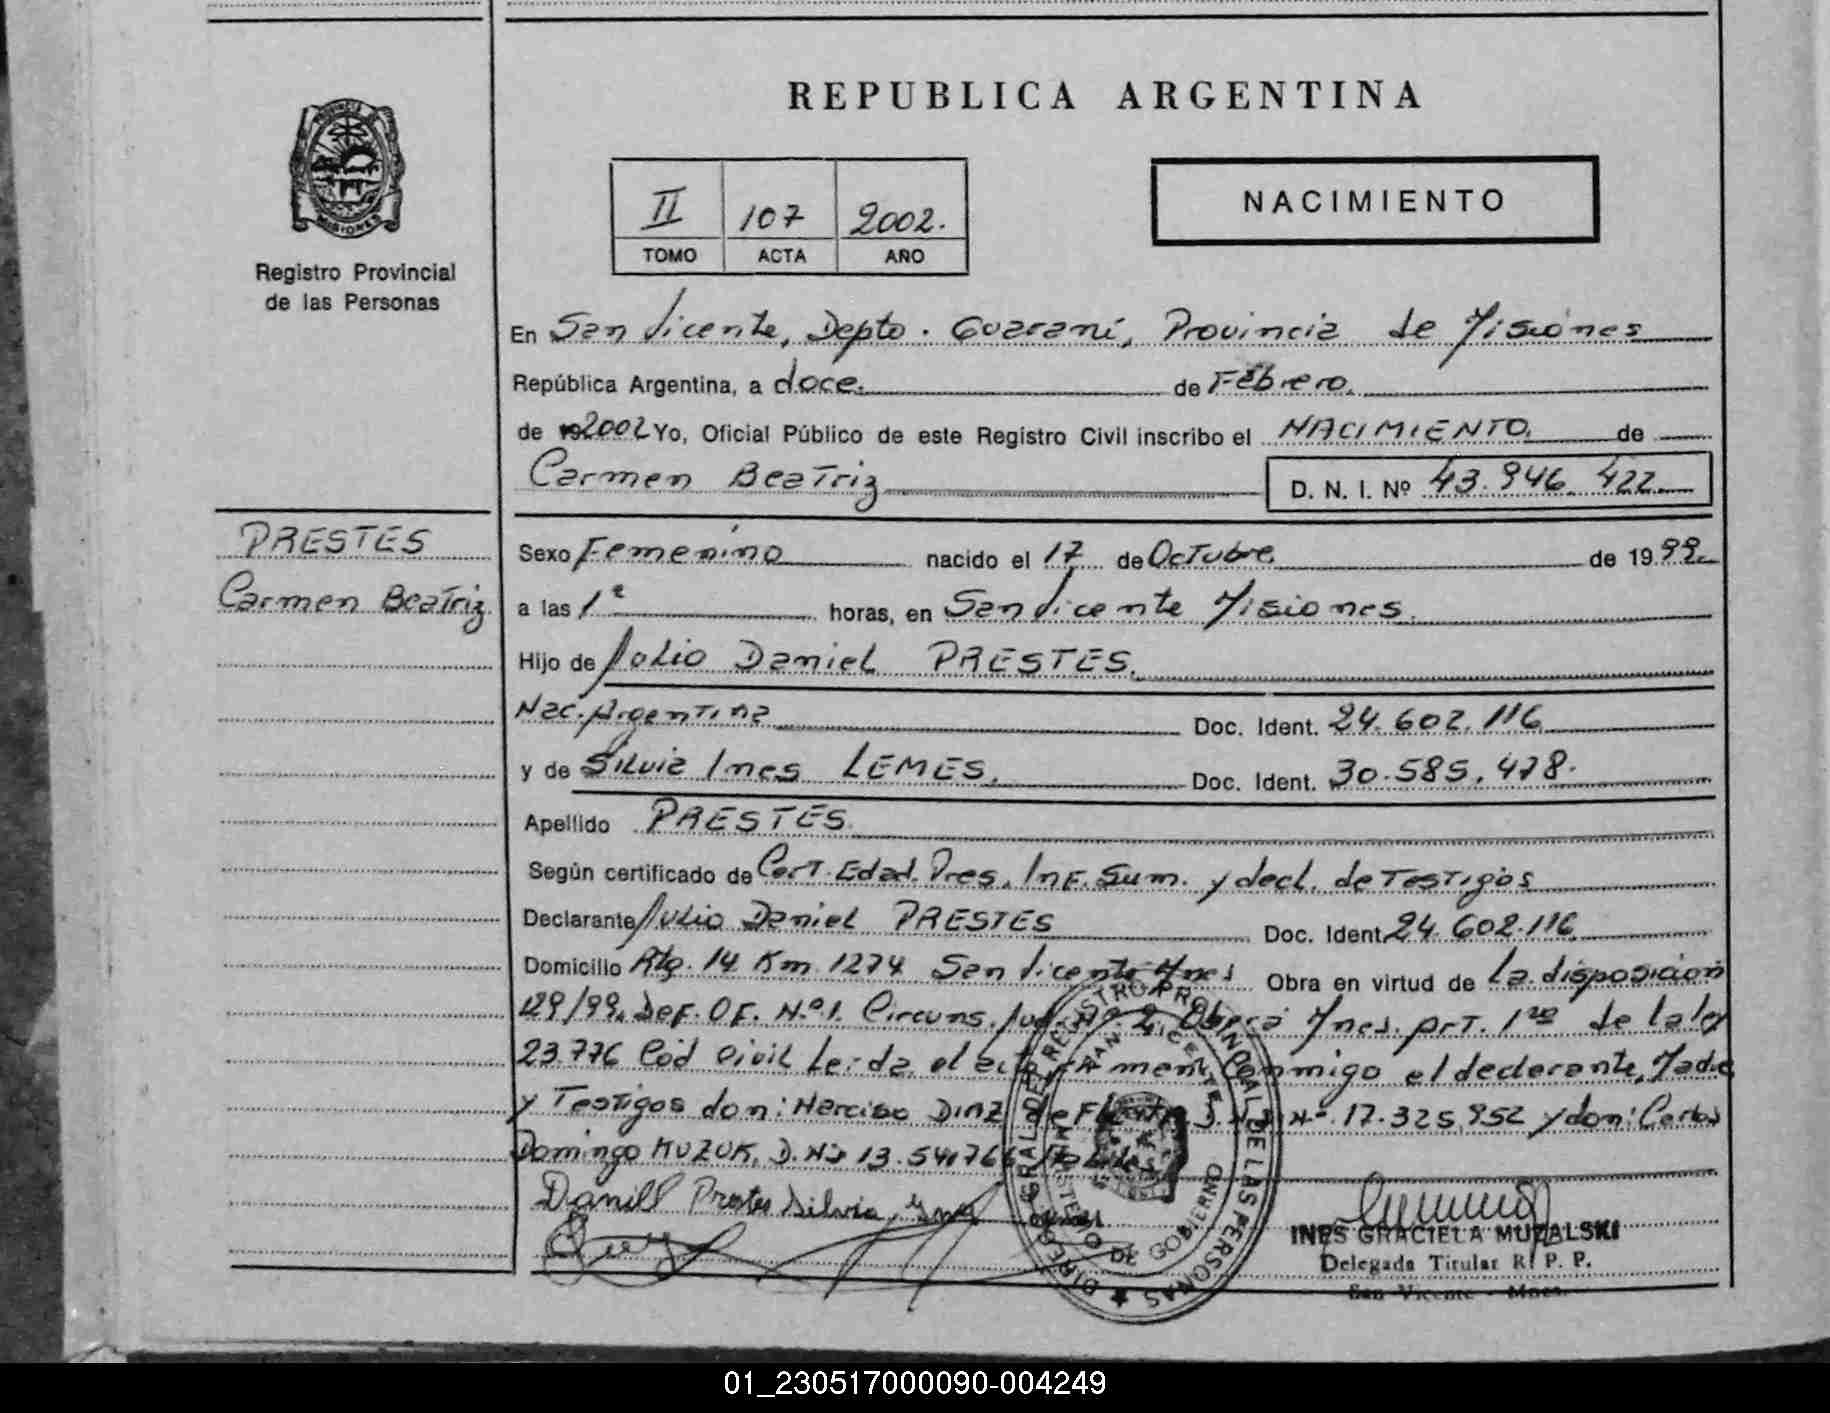 REPUBLICA ARGENTINA
II 107 2002.
TOMO ACTA AÑO
NACIMIENTO
PROVINCIA DE MISIONES
Registro Provincial
de las Personas
En San Vicente, Depto. Guaraní, Provincia de Misiones
República Argentina, a doce. de Febrero.
de 2002 Yo, Oficial Público de este Registro Civil inscribo el NACIMIENTO. de
Carmen Beatriz D. N. I. Nº 43.946.422
PRESTES
Carmen Beatriz.
Sexo Femenino nacido el 17 de Octubre de 1999.
a las 1ª horas, en San Vicente Misiones.
Hijo de Julio Daniel PRESTES.
Nac. Argentina Doc. Ident. 24.602.116
y de Silvia Ines LEMES. Doc. Ident. 30.585.478.
Apellido PRESTES.
Según certificado de Cert. Edad. Pres. Inf. Sum. y decl. de Testigos
Declarante Julio Daniel PRESTES Doc. Ident. 24.602.116
Domicilio Rta. 14 Km. 1274 San Vicente Mnes Obra en virtud de La disposición
129/99. Def. OF. Nº 1. Circuns. Jud. Nº 2. Oberá Mnes. art. 1ro de la ley
23.776 Cód Civil Leída el acta firman conmigo el declarante, Madre
y Testigos don: Narciso DIAZ D.N.I. Nº 17.325.952 y don: Carlos
Domingo KUZUK, D.N.I. 13.541766
Daniel Prestes Silvia Ines
DIRECCION GRAL DEL REGISTRO PROVINCIAL DE LAS PERSONAS
MINISTERIO DE GOBIERNO
SAN VICENTE
INES GRACIELA MUZALSKI
Delegada Titular R. P. P.
San Vicente - Mnes.
01_230517000090-004249